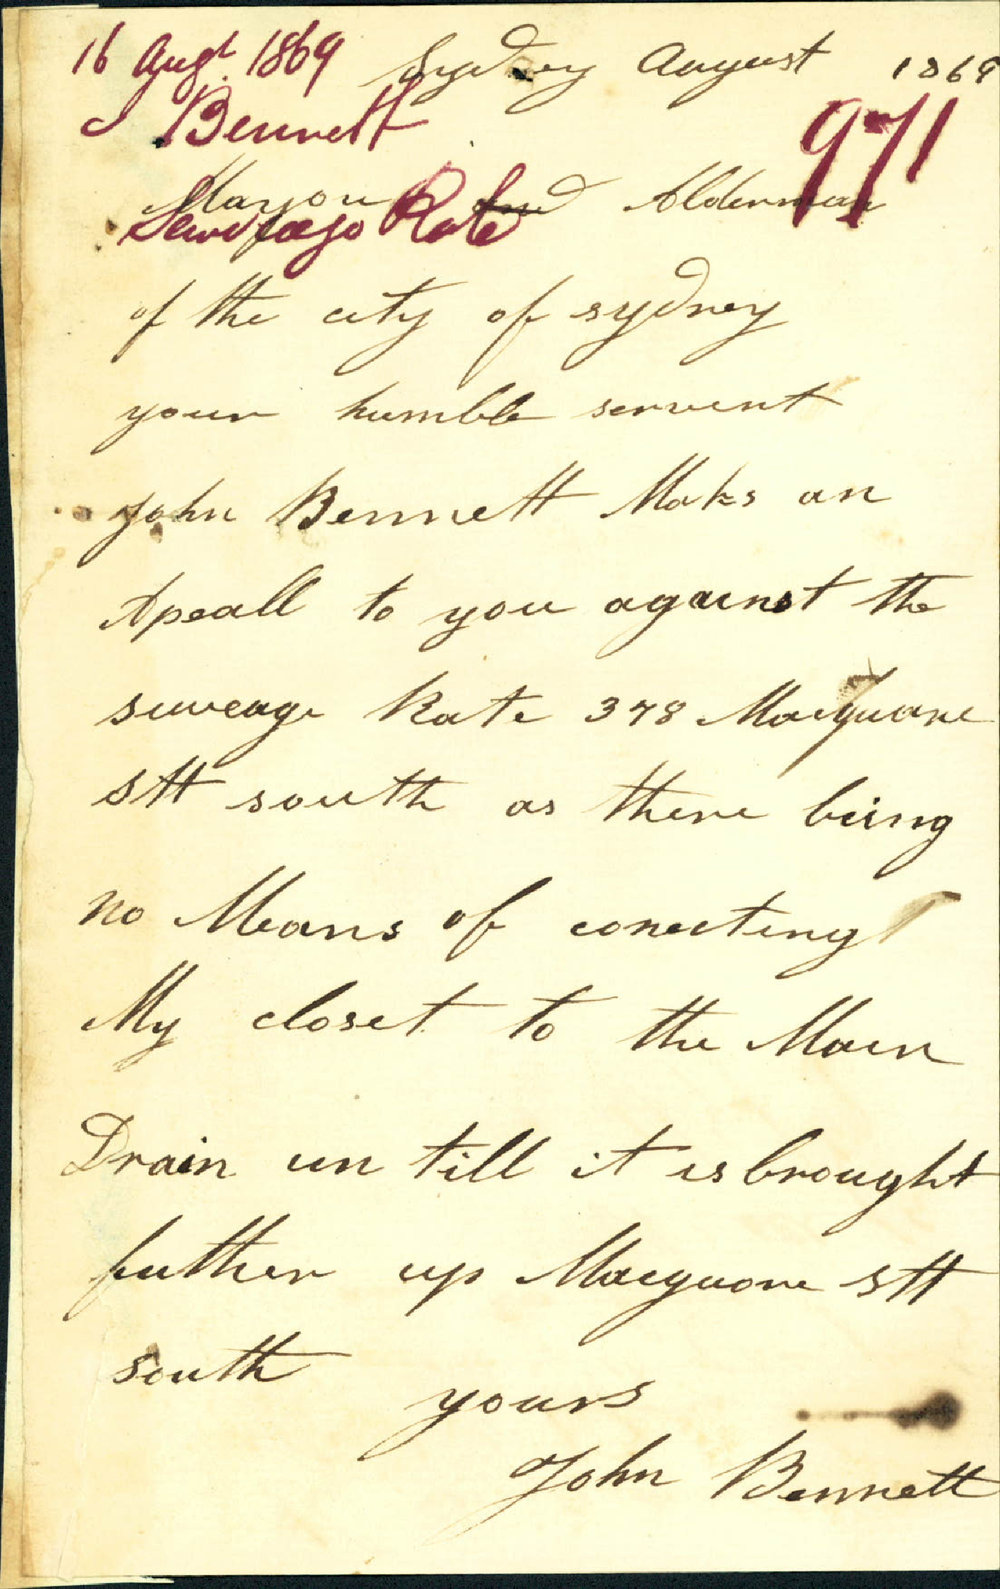 16 Augt. 1869
Sydney August 1869
J Bennett
971
Mayor and Alderman
Sewerage Rate
of the city of sydney
your humble servent
John Bennett Maks an
Apeall to you against the
seuveage Rate 378 Macquare
Stt south as there being
no Means of conecting
My closet to the Main
Drain un till it is brought
futher up Macquare Stt
south
yours
John Bennett